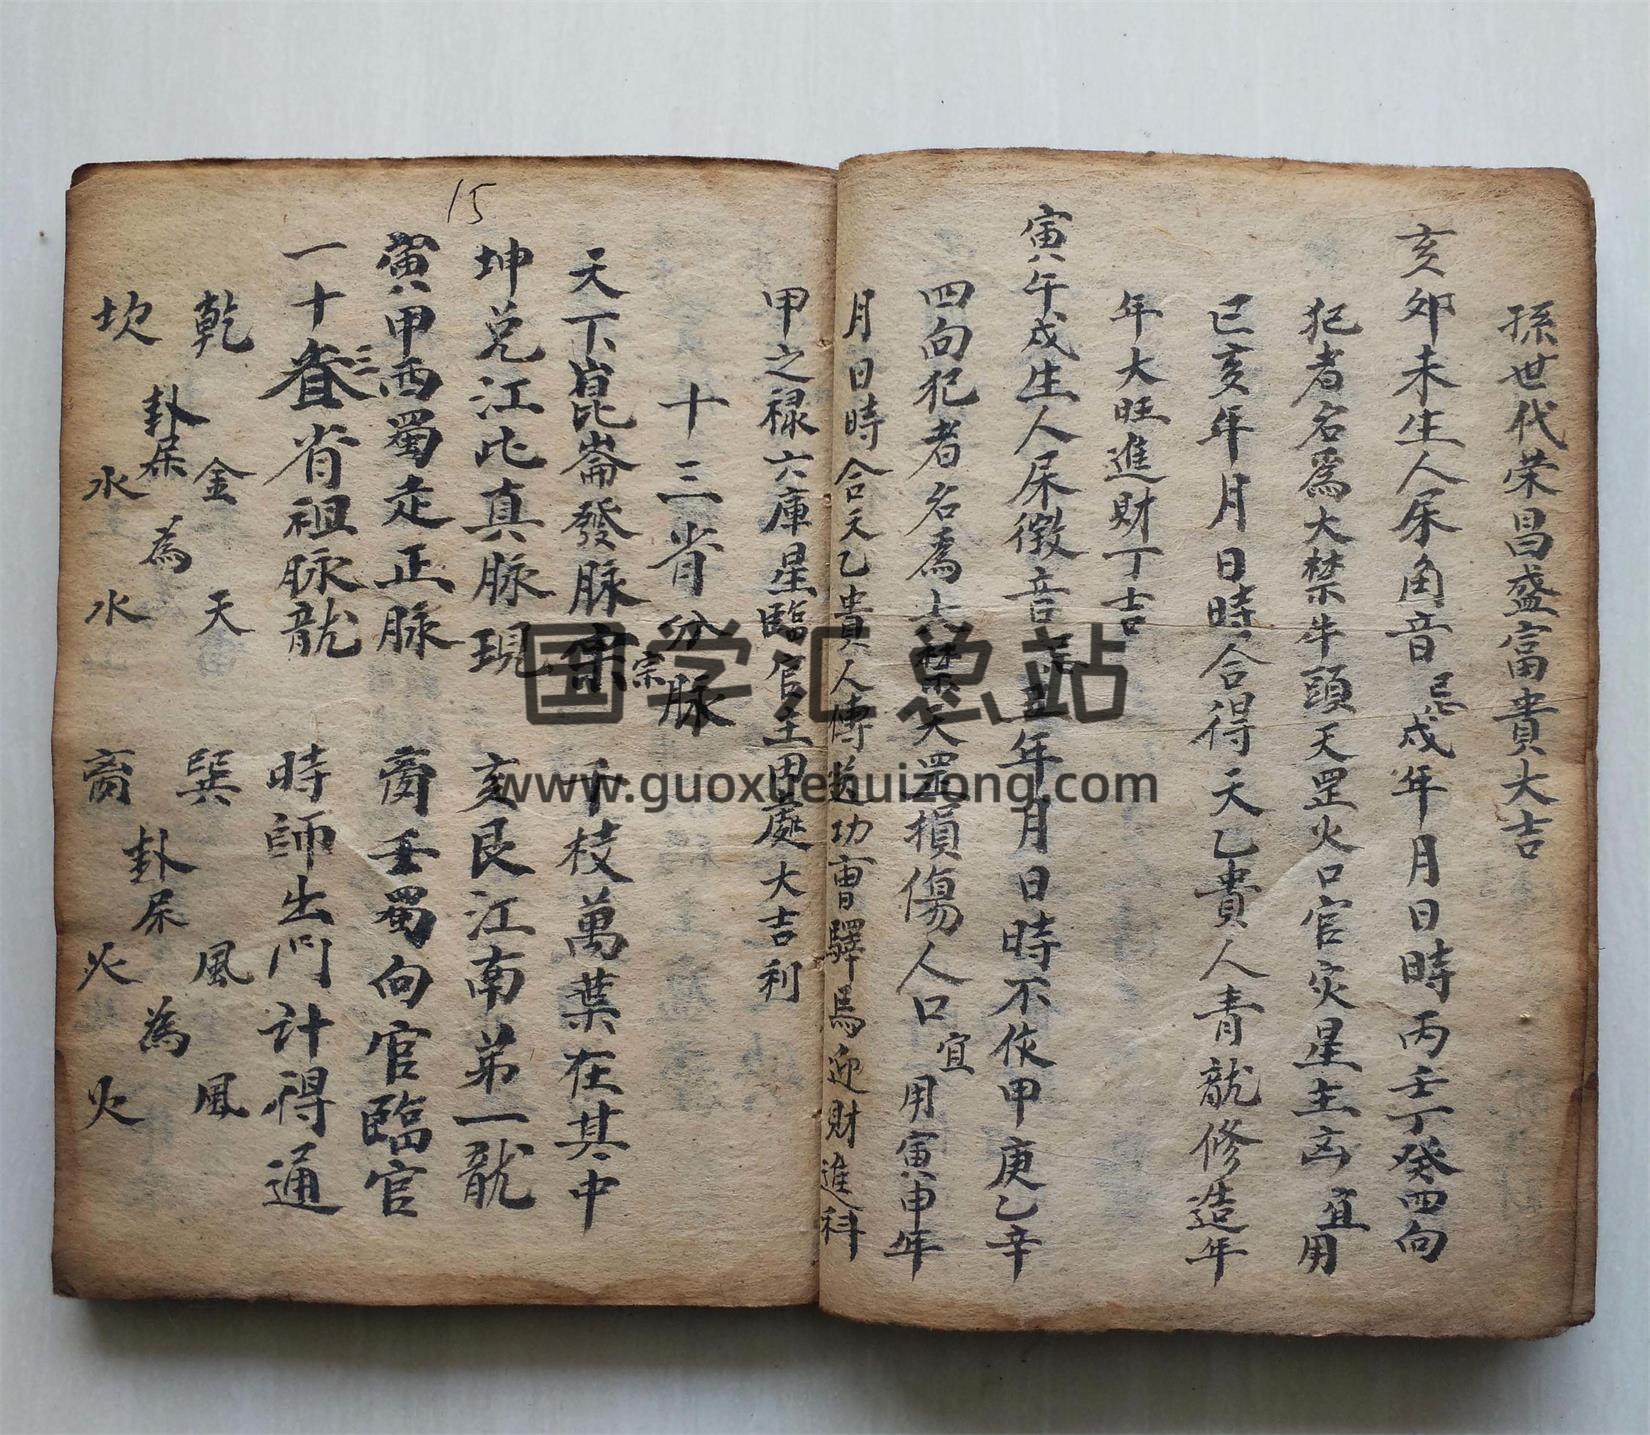 孫世代荣昌盛富貴大吉
亥夘未生人屎角音忌戍年月日時丙壬丁癸四向
犯者名爲大禁牛頭天罡火口官灾星主凶宜用
已亥年月日時合得天乙貴人青龍修造年
年大旺進財丁吉
寅午戍生人屎徵音忌丑年月日時不作甲庚乙辛
四向犯者名爲大禁天罡損傷人口宜用寅申年
月日時合天乙貴人傳送功曹驛馬迎財進科
甲之禄六庫星臨官主田蚕大吉利
十三省分脉
天下崑崙發脉宗 千枝萬葉在其中
坤兑江北真脉現 亥艮江南弟一龍
寅甲西蜀走正脉 离壬蜀向官臨官
一十三省祖脉龍 時師出門计得通
乾 金 天 巽 風 風
卦屎 為 卦屎 為
坎 水 水 离 火 火
15
国学汇总站
www.guoxuehuizong.com